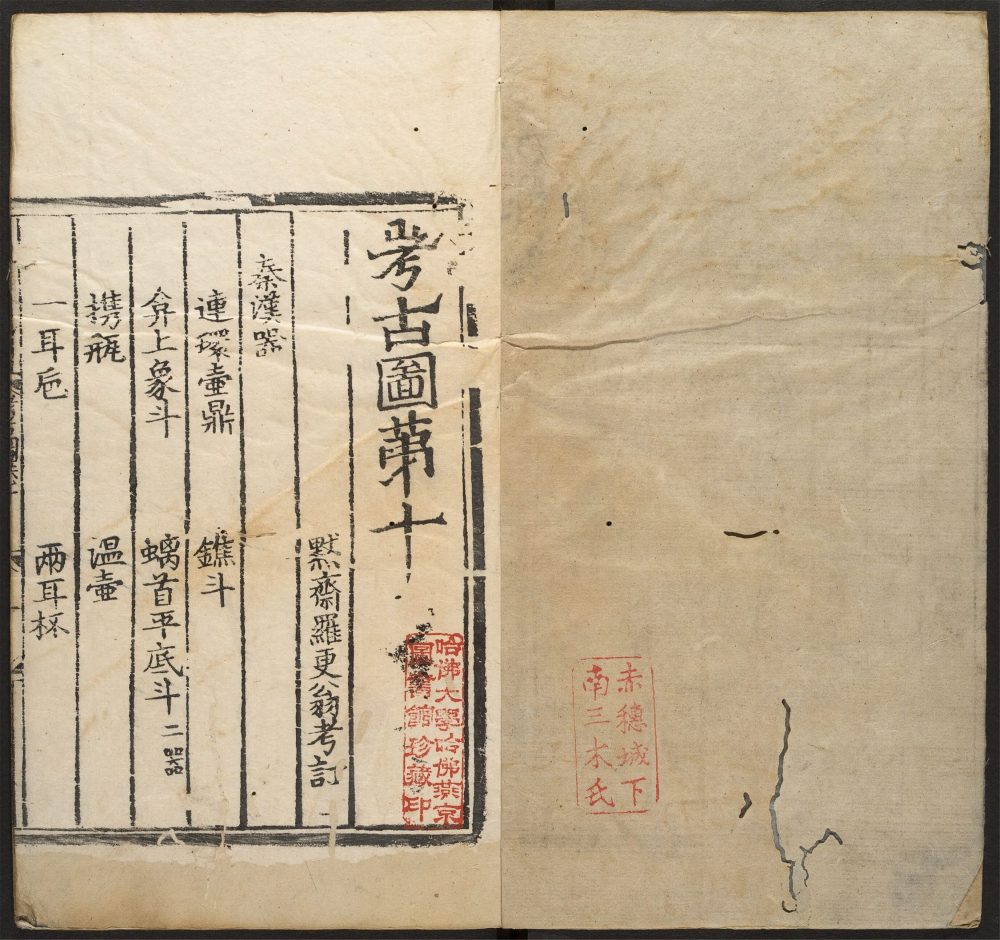 赤穗城下
南三木氏
考古圖第十
默齋羅更翁考訂
秦漢器
連環壷鼎　鐎斗
弇上象斗　螭首平底斗二器
携瓶　温壷
一耳巵　兩耳杯
哈佛大學哈佛燕京
圖書館珍藏印